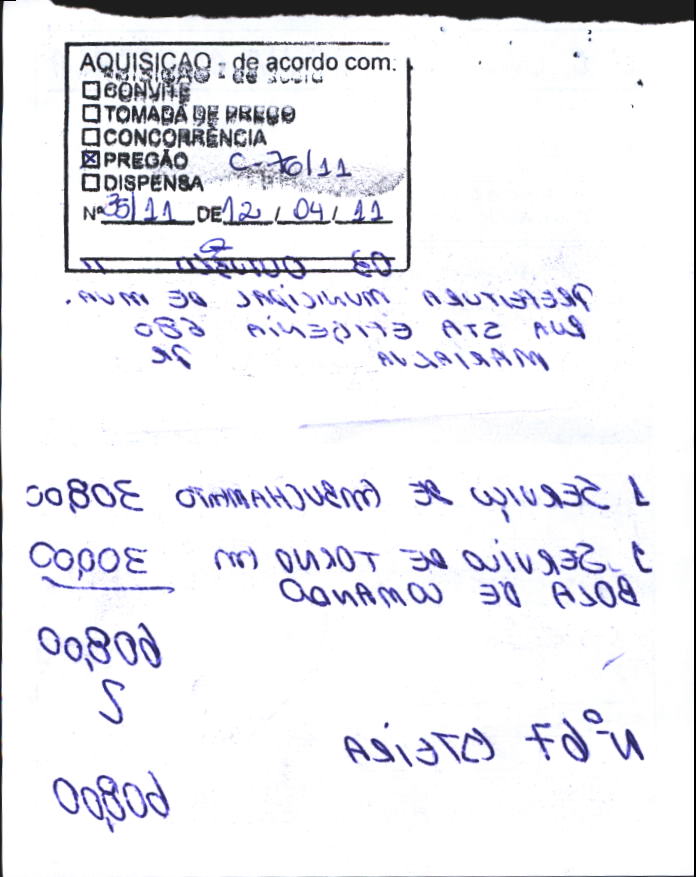 AQUISIÇÃO - de acordo com:
☐ CONVITE
☐ TOMADA DE PREÇO
☐ CONCORRÊNCIA
☒ PREGÃO C-76/11
☐ DISPENSA
Nº 35/11 DE 12 / 04 / 11
03 11
PREFEITURA MUNICIPAL DE MVA.
RUA STA EFIGENIA 680
MARIALVA PR
1 SERVIÇO DE EMBUCHAMENTO 308,00
1 SERVIÇO DE TORNO EM 300,00
BOLA DE COMANDO
608,00
Nº 67 ESTEIRA
608,00